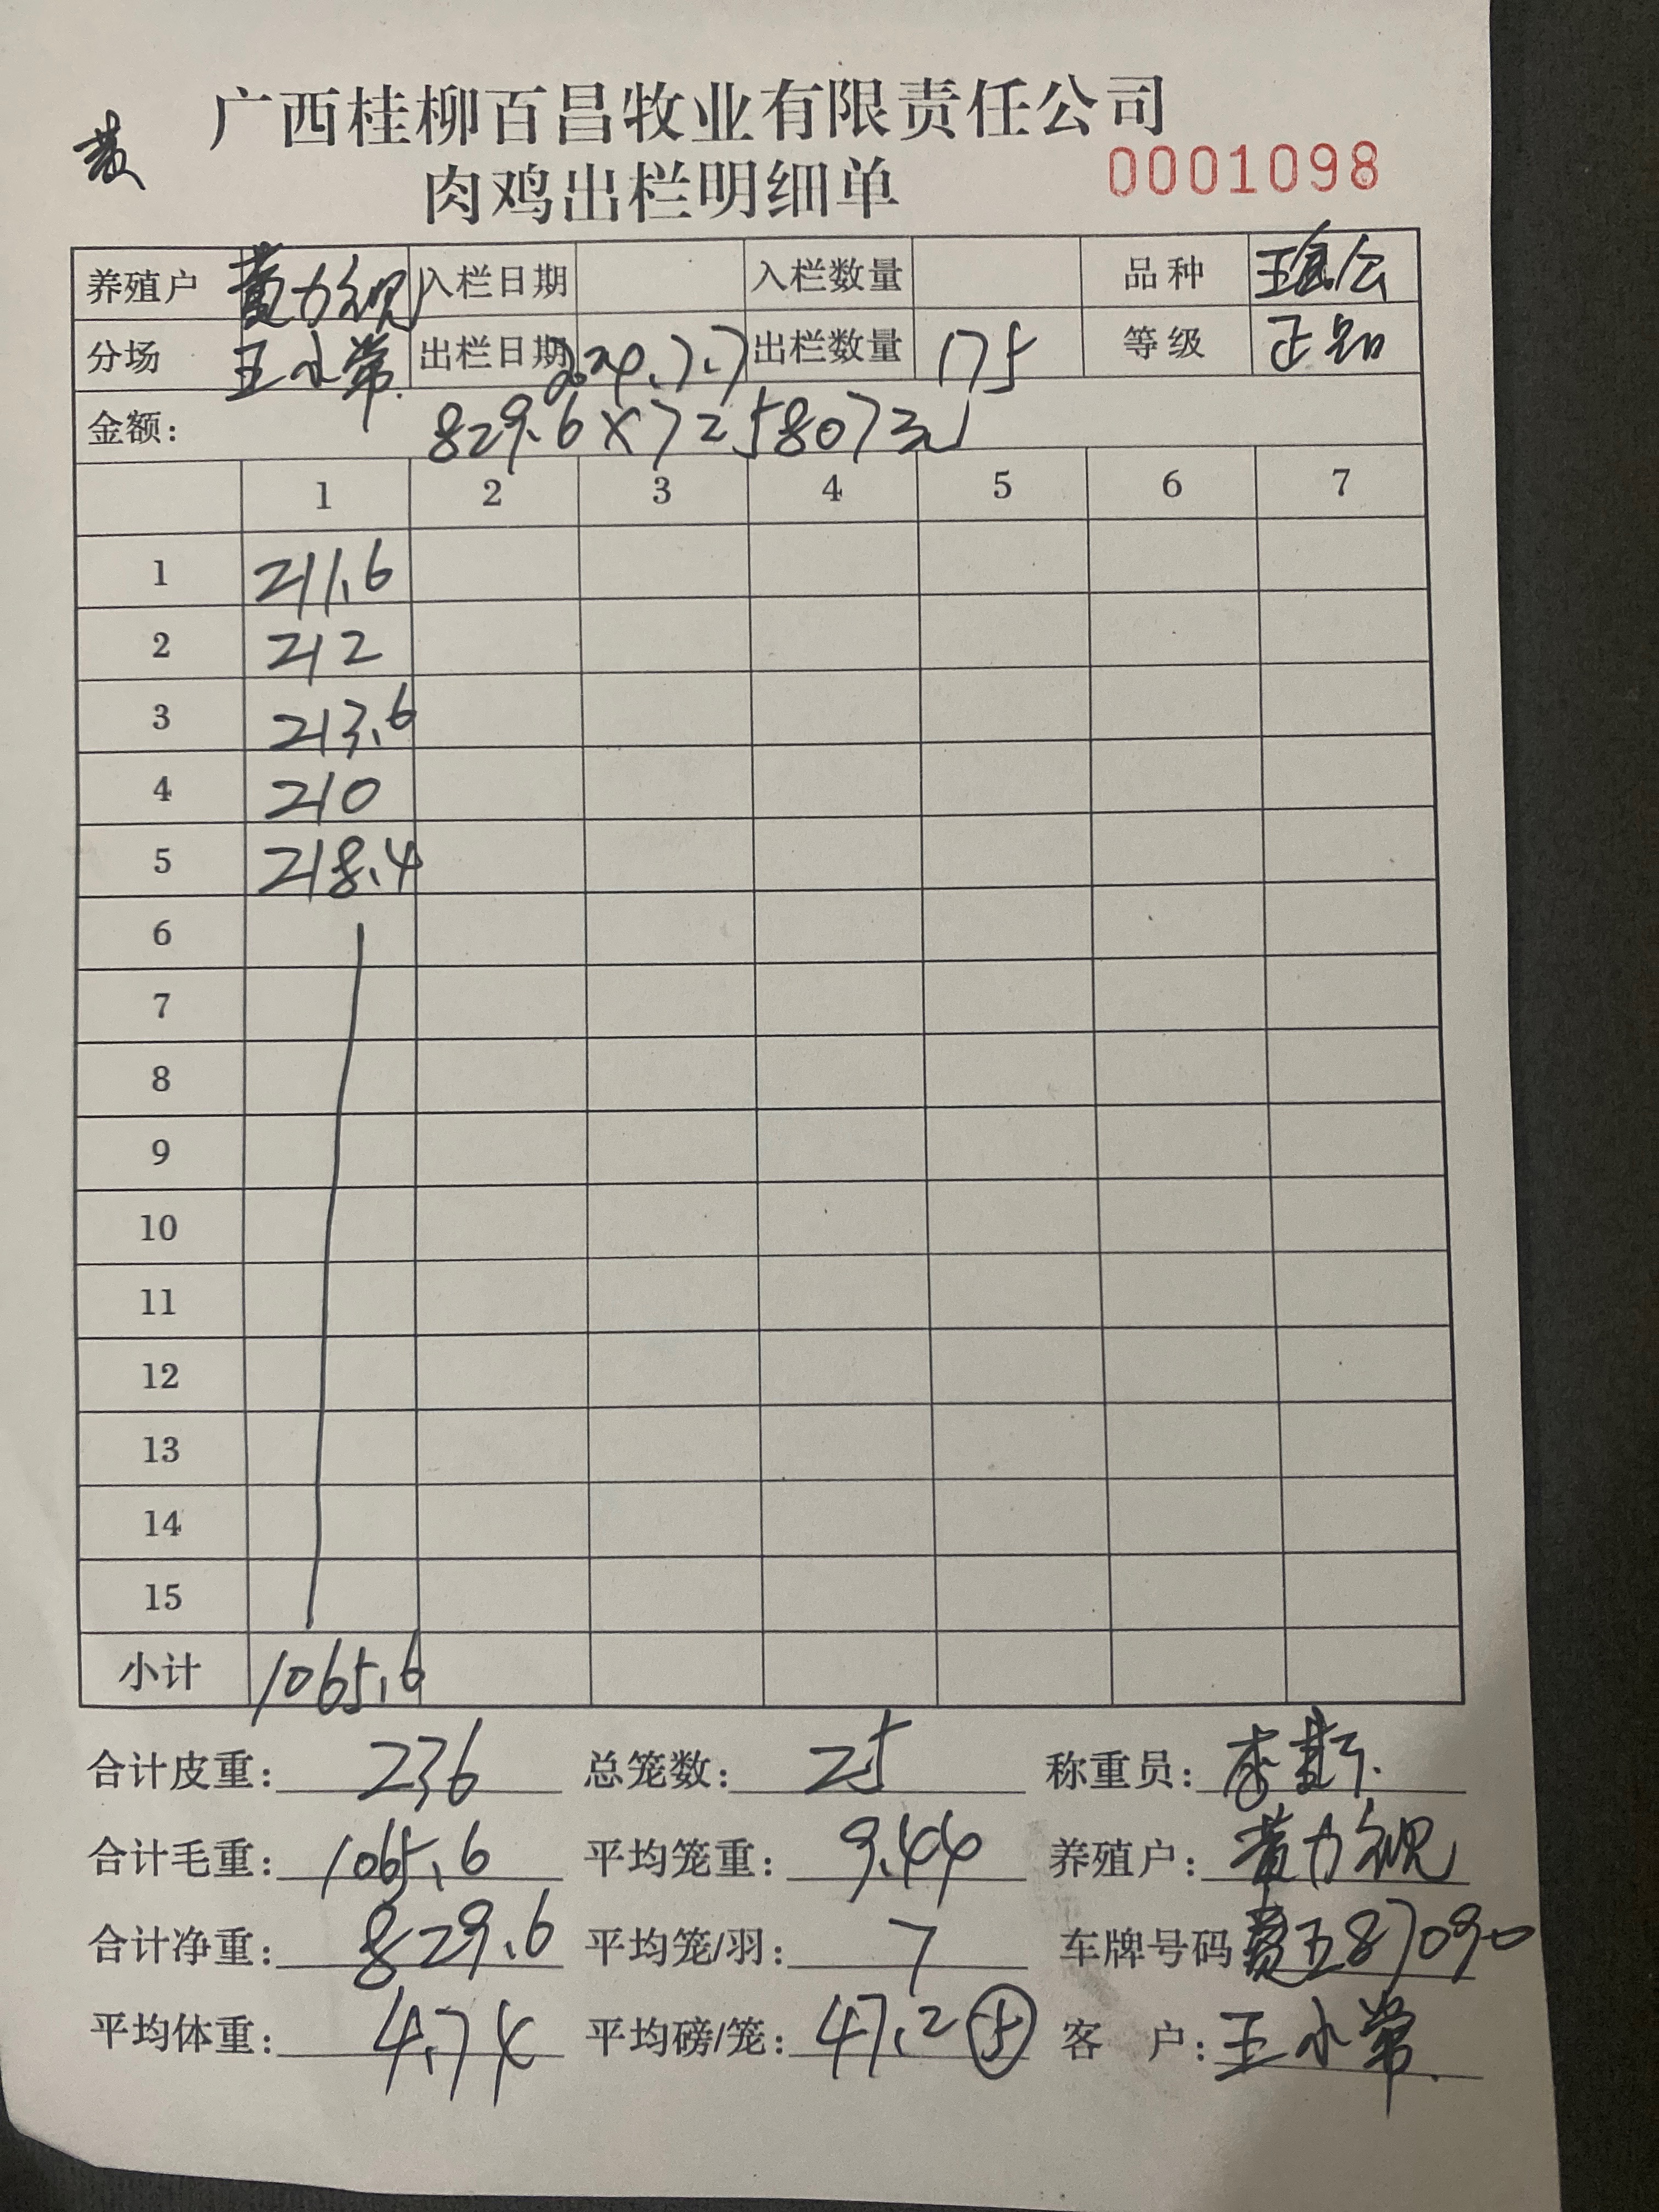 黄
广西桂柳百昌牧业有限责任公司
肉鸡出栏明细单 0001098
养殖户 黄力 入栏日期 入栏数量 品种
分场 王小常 出栏日期 2024.7.7 出栏数量 175 等级 正品
金额: 829.6×7 = 5807元
1 2 3 4 5 6 7
1 211.6
2 212
3 213.6
4 210
5 218.4
6
7
8
9
10
11
12
13
14
15
小计 1065.6
合计皮重: 236 总笼数: 25 称重员: 李
合计毛重: 1065.6 平均笼重: 9.44 养殖户: 黄力
合计净重: 829.6 平均笼/羽: 7 车牌号码 87090
平均体重: 4.74 平均磅/笼: 47.2 5 客户: 王小常